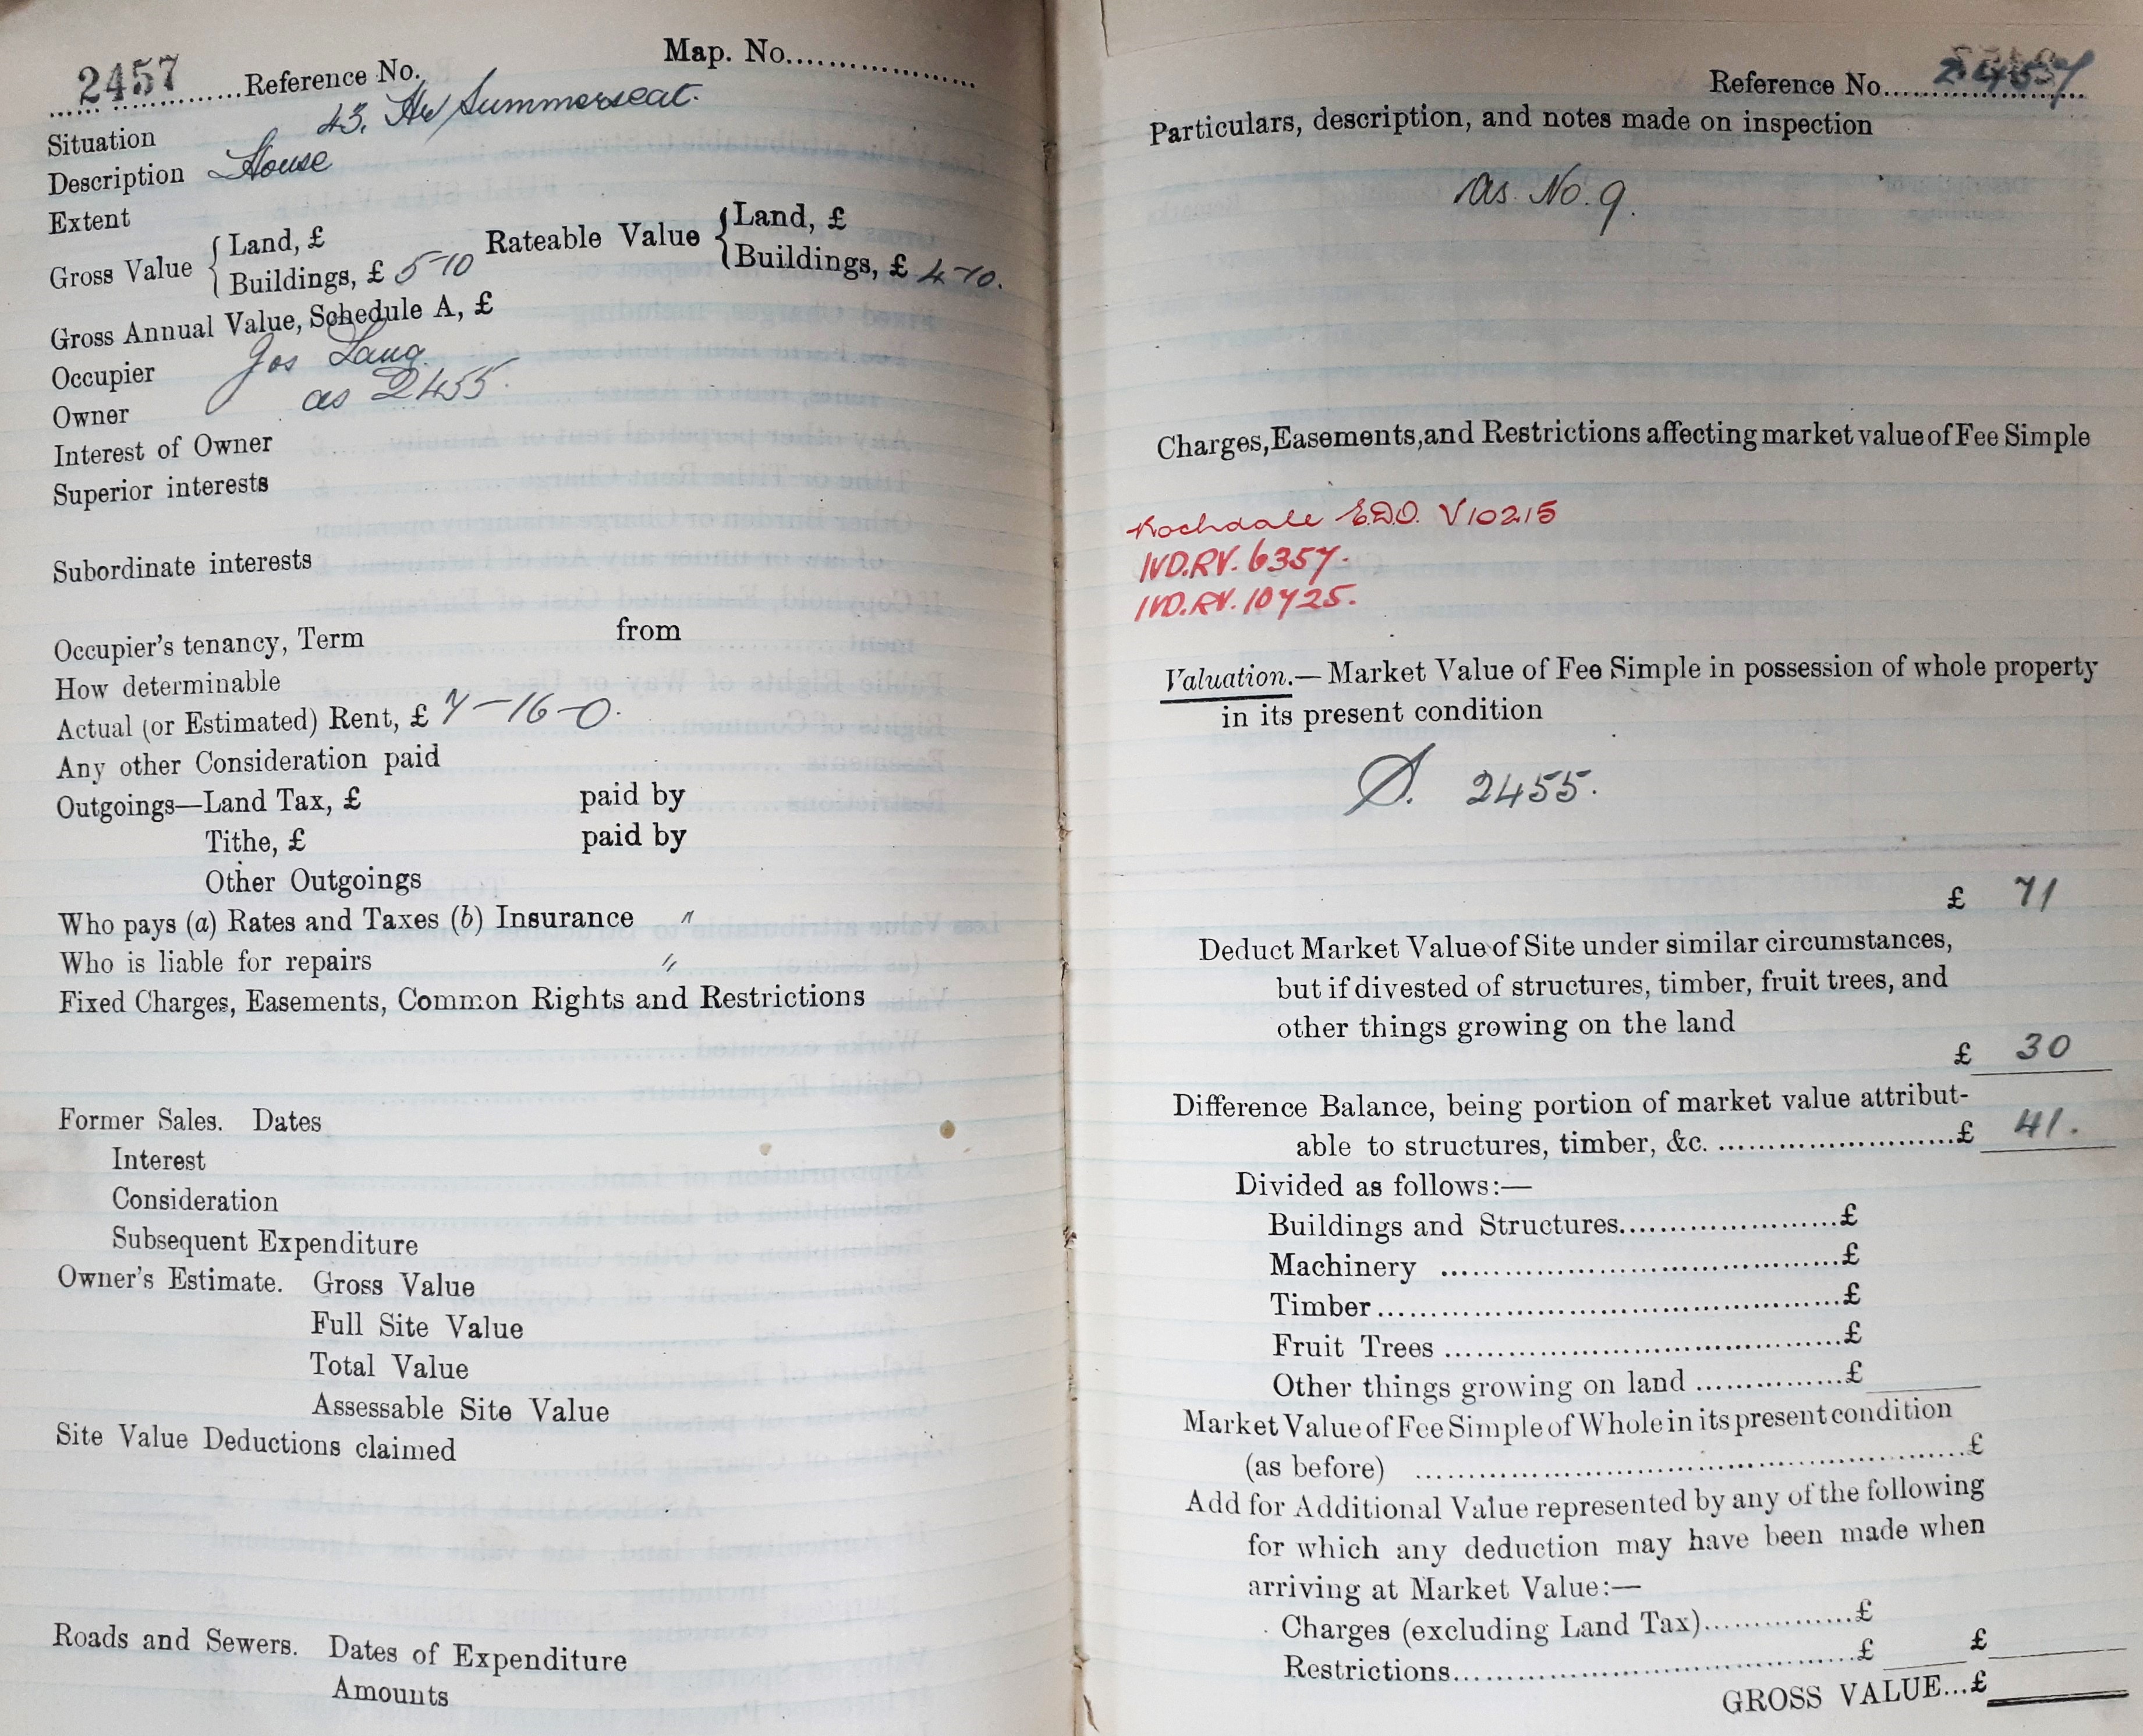 2457 Reference No. Map. No.
Situation 43, Hr Summerseat.
Description House
Extent
Gross Value { Land, £
Buildings, £ 5-10 Rateable Value { Land, £
Buildings, £ 4-10.
Gross Annual Value, Schedule A, £
Occupier Jos Lang
Owner as 2455.
Interest of Owner
Superior interests
Subordinate interests
Occupier's tenancy, Term from
How determinable
Actual (or Estimated) Rent, £ 7-16-0.
Any other Consideration paid
Outgoings—Land Tax, £ paid by
Tithe, £ paid by
Other Outgoings
Who pays (a) Rates and Taxes (b) Insurance "
Who is liable for repairs "
Fixed Charges, Easements, Common Rights and Restrictions
Former Sales. Dates
Interest
Consideration
Subsequent Expenditure
Owner's Estimate. Gross Value
Full Site Value
Total Value
Assessable Site Value
Site Value Deductions claimed
Roads and Sewers. Dates of Expenditure
Amounts
Reference No. 2457
Particulars, description, and notes made on inspection
as. No. 9.
Charges, Easements, and Restrictions affecting market value of Fee Simple
Rochdale E.D.O. V10215
IVD.RV. 6357.
IVD.RV. 10725.
Valuation.—Market Value of Fee Simple in possession of whole property
in its present condition
2455.
£ 71
Deduct Market Value of Site under similar circumstances,
but if divested of structures, timber, fruit trees, and
other things growing on the land
£ 30
Difference Balance, being portion of market value attribut-
able to structures, timber, &c. £ 41.
Divided as follows:—
Buildings and Structures £
Machinery £
Timber £
Fruit Trees £
Other things growing on land £
Market Value of Fee Simple of Whole in its present condition
(as before) £
Add for Additional Value represented by any of the following
for which any deduction may have been made when
arriving at Market Value:—
Charges (excluding Land Tax) £
Restrictions £ £
GROSS VALUE... £